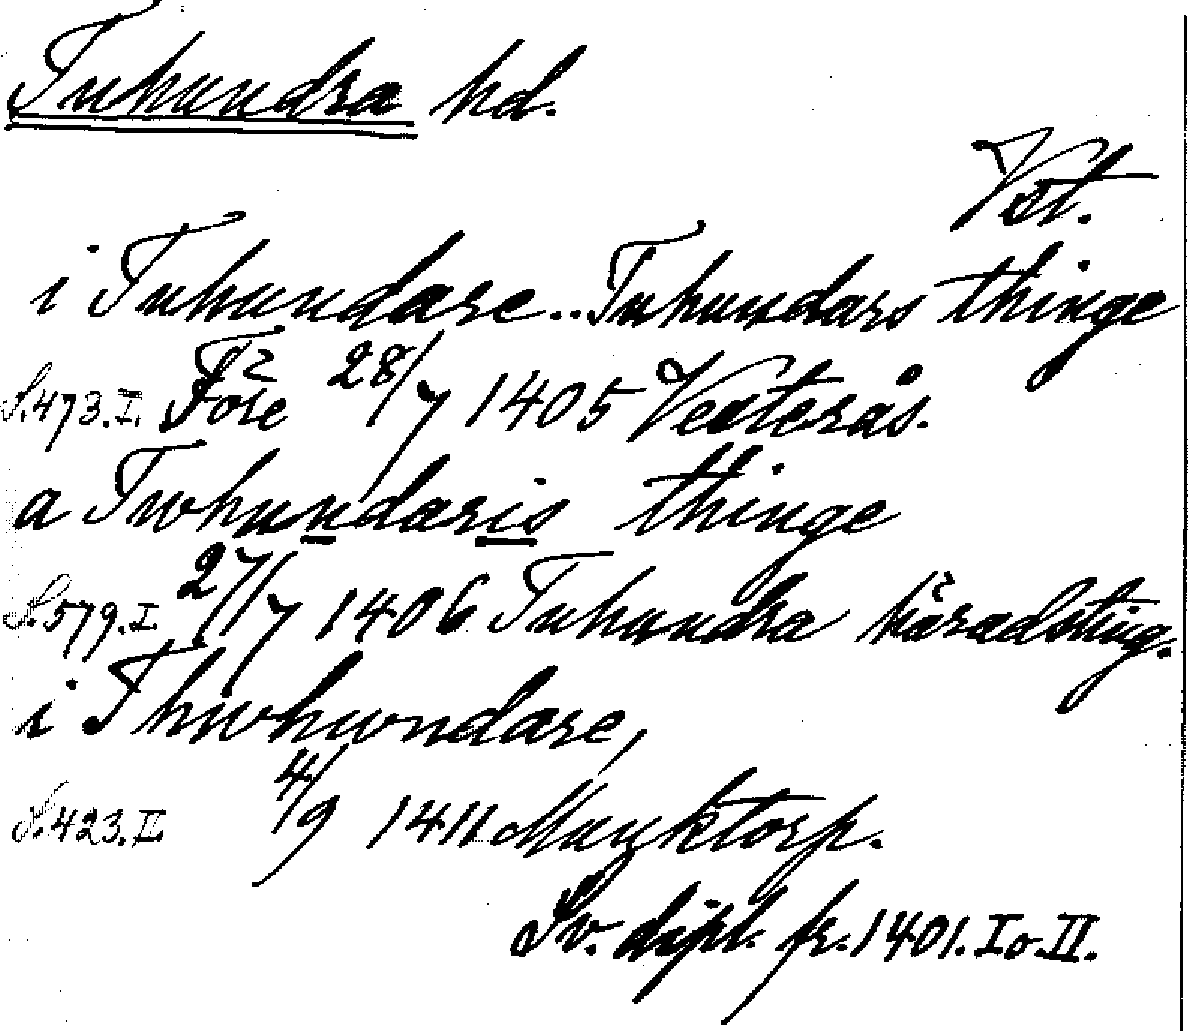 Tuhundra hd.
Vst.
i Tuhundare.. Tuhundars thinge
S.473.I. Före 28/7 1405 Vesterås.
a Twhundaris thinge
S.579.I 27/7 1406 Tuhundra häradsting.
i Thwhwndare,
S.423.II 4/9 1411 Munktorp.
Sv. dipl. fr. 1401. I o. II.